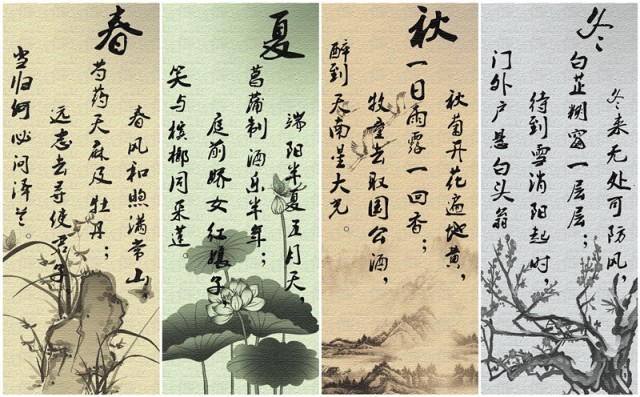 春
春风和煦满常山
芍药天麻及牡丹；
远志去寻使君子
当归何必问泽兰。
夏
端阳半夏五月天，
菖蒲制酒乐半年；
庭前娇女红娘子
笑与槟榔同采莲。
秋
秋菊开花遍地黄，
一日雨露一回香；
牧童去取国公酒，
醉到天南星大光。
冬
冬来无处可防风，
白芷糊窗一层层；
待到雪消阳起时，
门外户悬白头翁